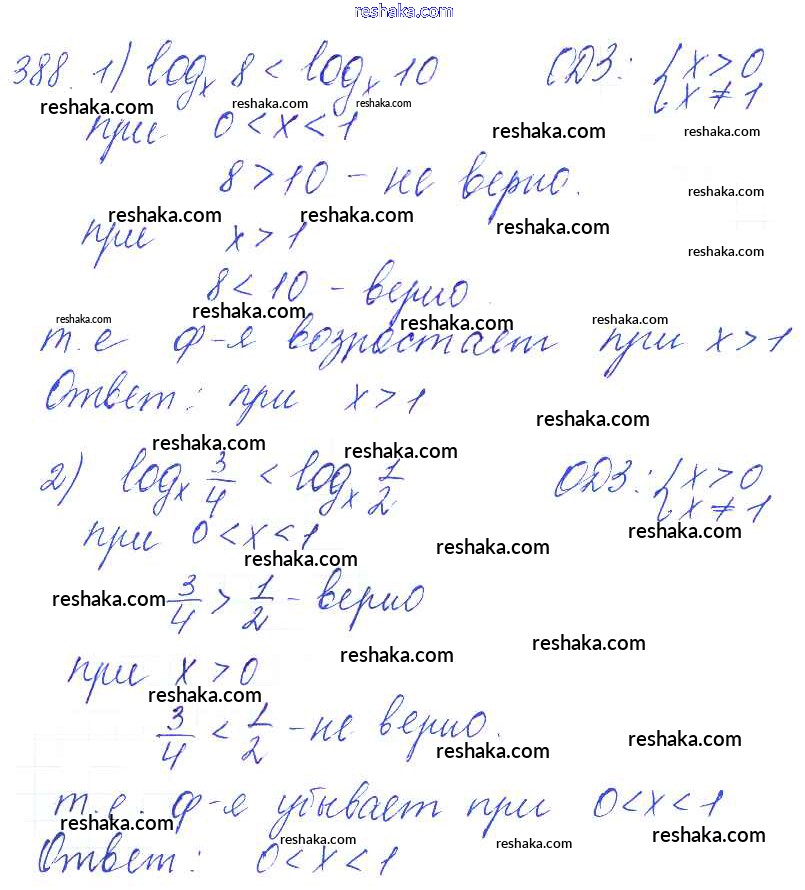 reshaka.com
388. 1) log_x 8 < log_x 10   ОДЗ: { x > 0
{ x ≠ 1
reshaka.com reshaka.com reshaka.com
при 0 < x < 1
reshaka.com reshaka.com
8 > 10 - не верно.
reshaka.com
reshaka.com reshaka.com reshaka.com
при x > 1
reshaka.com
8 < 10 - верно.
reshaka.com reshaka.com reshaka.com reshaka.com
т.е ф-я возрастает при x > 1
Ответ: при x > 1
reshaka.com
reshaka.com reshaka.com
2) log_x 3/4 < log_x 1/2   ОДЗ: { x > 0
{ x ≠ 1
reshaka.com
при 0 < x < 1
reshaka.com reshaka.com
reshaka.com 3/4 > 1/2 - верно
reshaka.com reshaka.com
при x > 0
reshaka.com
3/4 < 1/2 - не верно.
reshaka.com reshaka.com
т.е. ф-я убывает при 0 < x < 1
reshaka.com reshaka.com reshaka.com reshaka.com
Ответ: 0 < x < 1